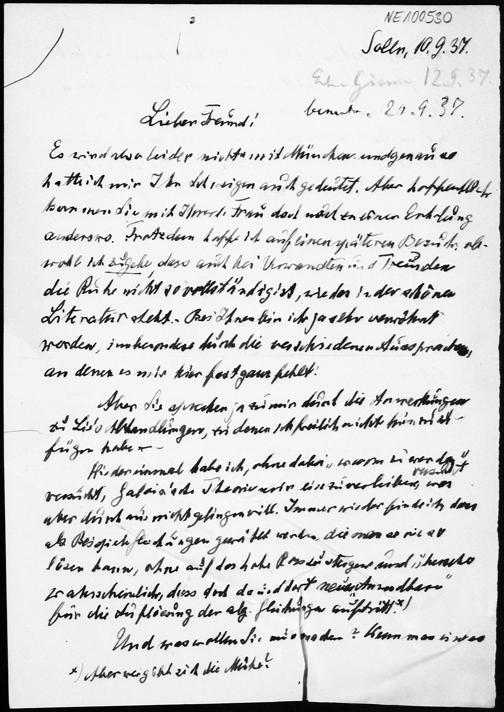 NE100530
Solln, 10.9.37.
12.9.37.
20.9.37.
Lieber Freund!
Es wird also leider nichts mit München und genau so
hatte ich mir Ihr Schweigen auch gedeutet. Aber hoffentlich
kommen Sie mit Ihrer Frau doch noch zu einer Erholung
anderswo. Trotzdem hoffe ich auf einen späteren Besuch, ob-
wohl ich zugebe, dass auch bei Verwandten und Freunden
die Ruhe nicht so vollständig ist, wie das in der schönen
Literatur steht. - Bei Ihnen bin ich ja sehr verwöhnt
worden, insbesondere durch die verschiedenen Aussprachen,
an denen es mir hier fast ganz fehlt!
Aber Sie sprechen ja zu mir durch die Anmerkungen
zu Lie's Abhandlungen, zu denen ich freilich nicht
fügen habe -
Wieder einmal habe ich, ohne dabei "warm zu werden"
versucht, Galois'sche Theorie mir einzuverleiben, was
aber durchaus nicht gelingen will. Immer wieder finde ich, dass
als Beispiele Gleichungen gewählt werden, die man so wie so
lösen kann, ohne auf das hohe Ross zu steigen und
dass doch da und dort "neue Anwendbare"
für die Auflösung der alg. Gleichungen auftritt.*)
Und was wollen Sie mir raten? Kann man etwas
*) Aber wer gibt sich die Mühe?